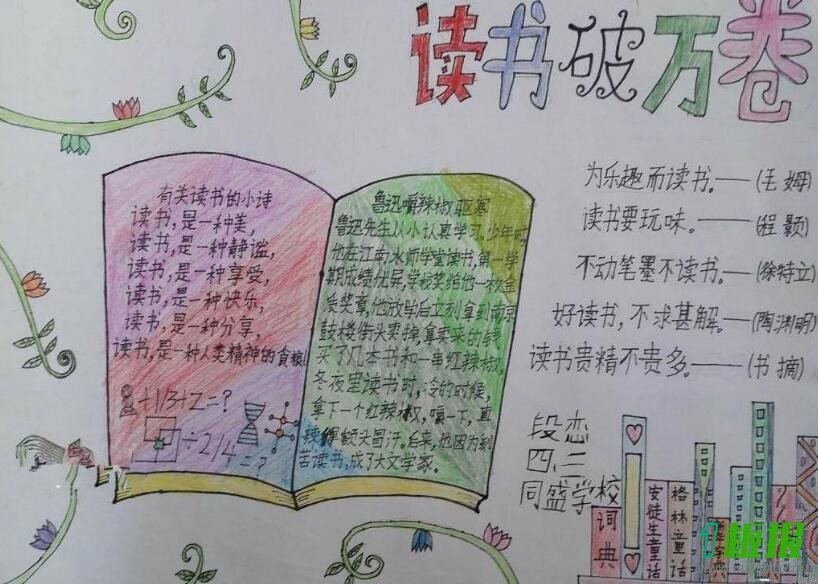 读书破万卷
有关读书的小诗
读书,是一种美,
读书,是一种静谧,
读书,是一种享受,
读书,是一种快乐,
读书,是一种分享,
读书,是一种人类精神的食粮!
+1/3+2=?
÷2/4
=?
鲁迅嚼辣椒驱寒
鲁迅先生从小认真学习。少年时,
他在江南水师学堂读书,第一学
期成绩优异,学校奖给他一枚金
质奖章,他放学后立刻拿到南京
鼓楼街头卖掉,拿卖来的钱
买了几本书和一串红辣椒,
冬夜里读书时,冷的时候,
拿下一个红辣椒,嚼一下,直
辣得额头冒汗。后来,他因为刻
苦读书,成了大文学家。
为乐趣而读书。——(毛姆)
读书要玩味。——(程颢)
不动笔墨不读书。——(徐特立)
好读书,不求甚解。——(陶渊明)
读书贵精不贵多。——(书摘)
段恋
四、二
同盛学校
词典
安徒生童话
格林童话
板报